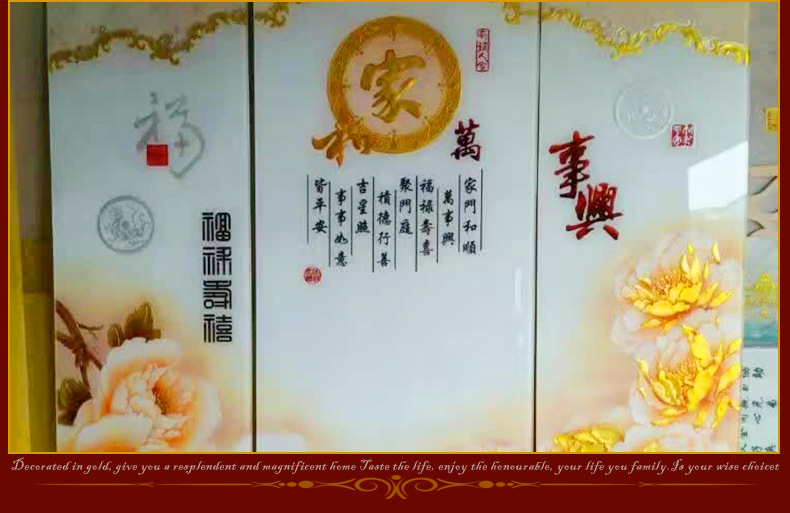 福
福祿壽禧
家
和
萬
事
興
家門和順
萬事興
福祿壽喜
聚門庭
積德行善
吉星照
事事如意
皆平安
Decorated in gold, give you a resplendent and magnificent home Taste the life, enjoy the honourable, your life you family.Is your wise choicet